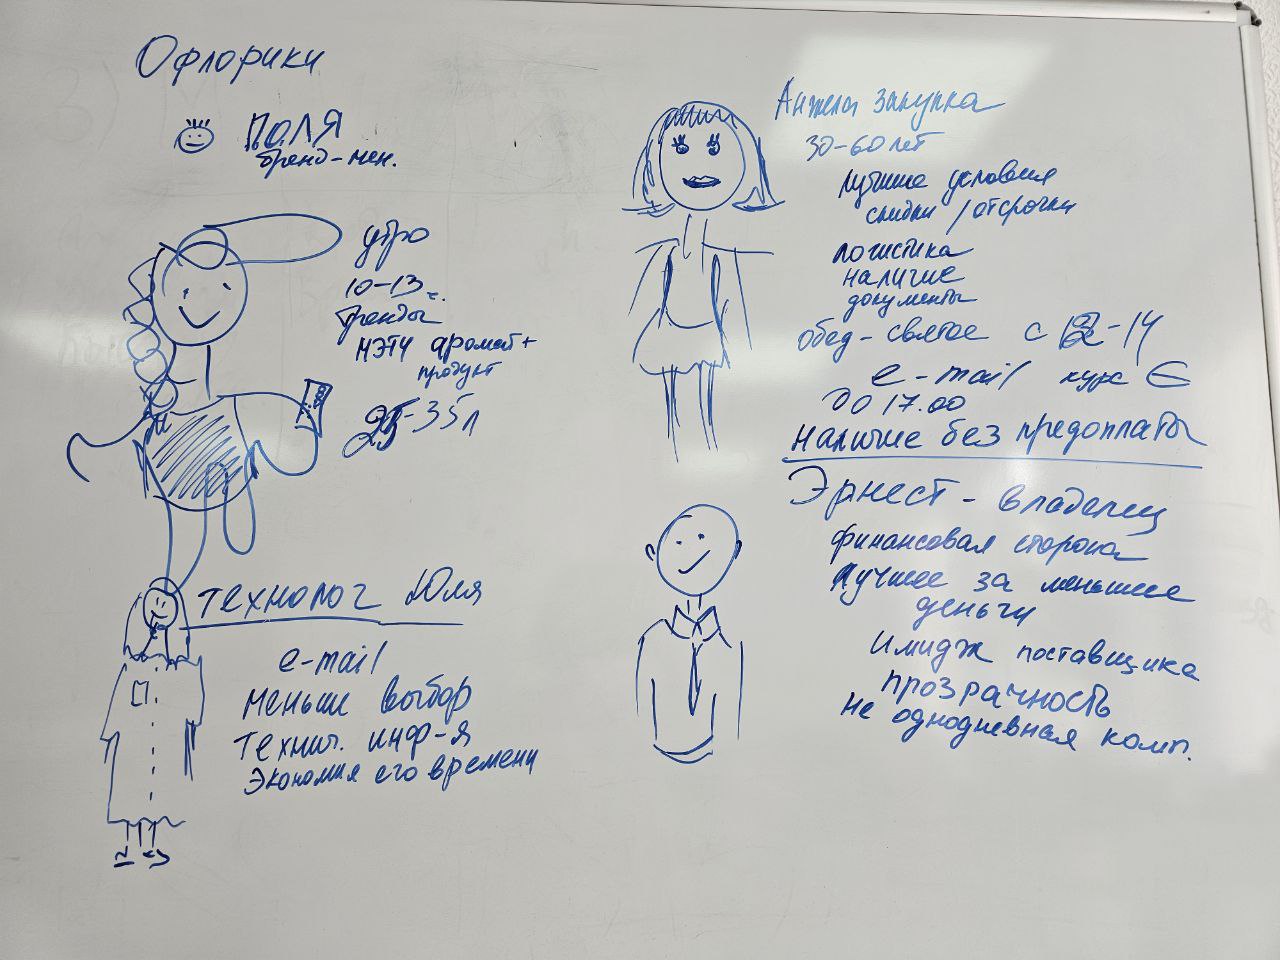 Офлорики
ПОЛЯ
бренд-мен.
утро
10-13 ч.
тренды
МЭТЧ аромат +
продукт
25-35 л
технолог Юля
e-mail
меньш выбор
технич. инф-я
Экономия его времени
Анжела закупка
30-60 лет
лучшие условия
скидки / отсрочки
логистика
наличие
документы
обед - святое с 13-14
e-mail курс €
до 17.00
наличие без предоплаты
Эрнест - владелец
финансовая сторона
Лучшее за меньшие
деньги
Имидж поставщика
прозрачность
не однодневная комп.